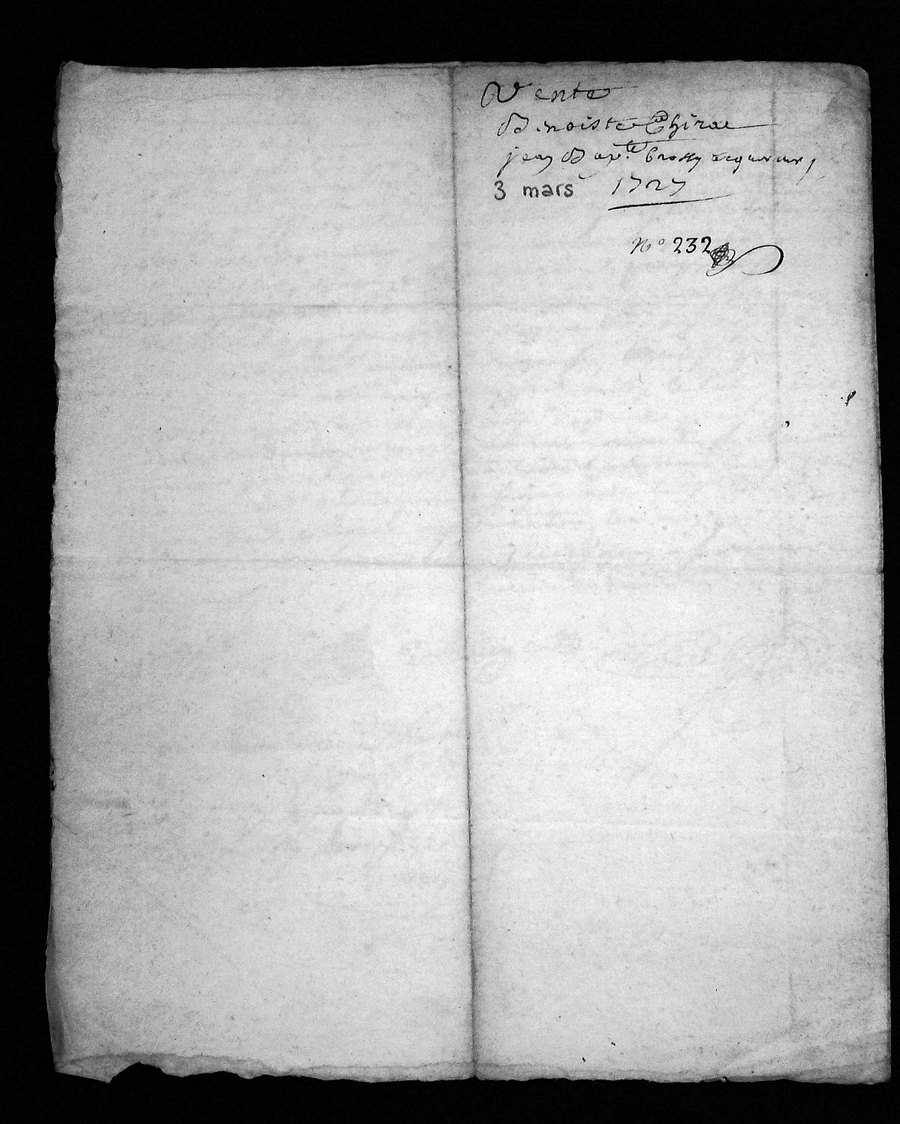 Vente
Benoiste Chirac
jean Bapte brossy acquereur,
3 mars 1727
No 232